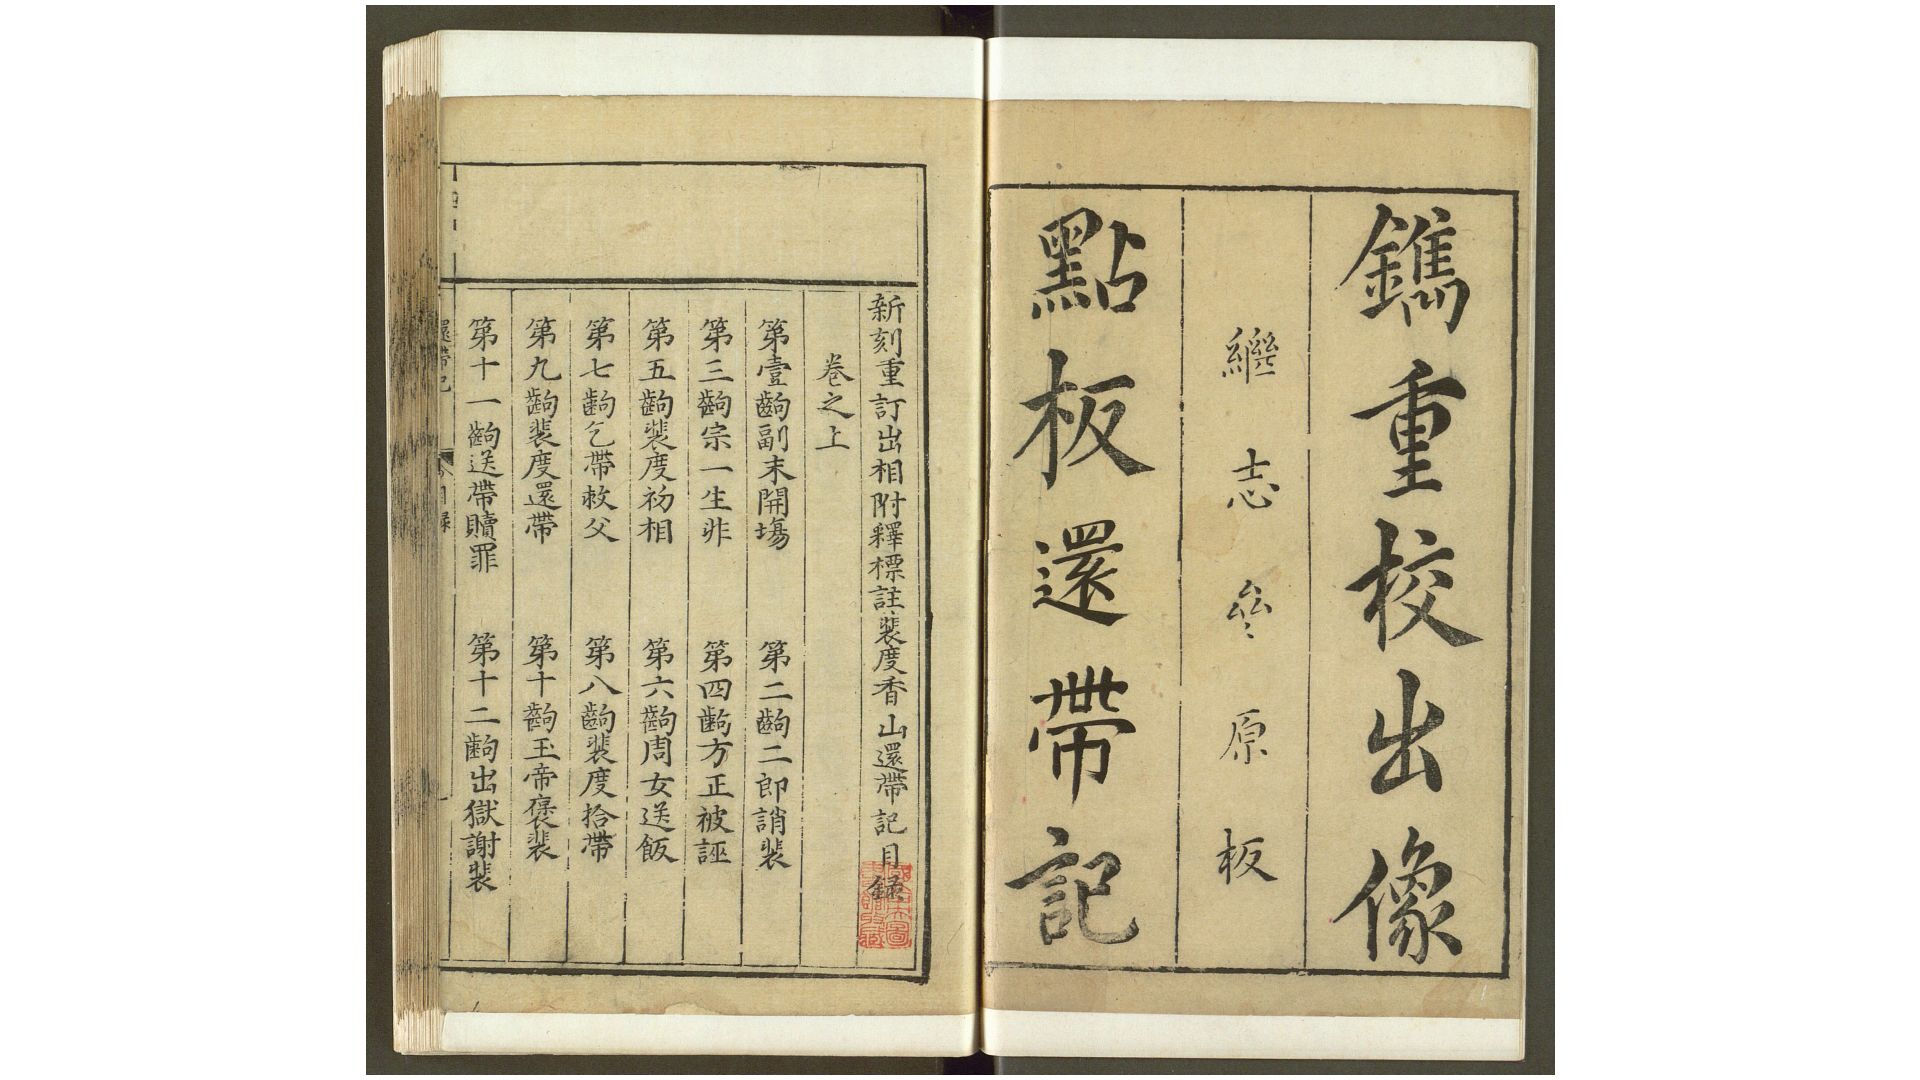 鐫重校出像
繼志叅原板
點板還帶記
新刻重訂出相附釋標註裴度香山還帶記目録
卷之上
第壹齣副末開塲
第二齣二郎誚裴
第三齣宗一生非
第四齣方正被誣
第五齣裴度初相
第六齣周女送飯
第七齣乞帶救父
第八齣裴度拾帶
第九齣裴度還帶
第十齣玉帝褒裴
第十一齣送帶贖罪
第十二齣出獄謝裴
還帶記
目録